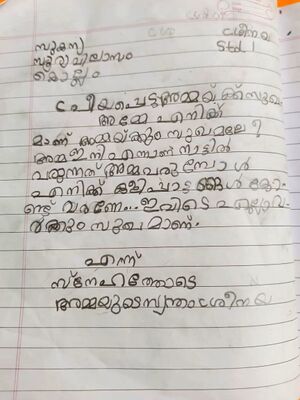 ശ്രീനയ
Std. 1
സുകന്യ
സൂര്യവിലാസം
കൊല്ലം
പ്രീയപ്പെട്ട അമ്മയ്ക്ക് സുഖ
അമ്മേ എനിക്ക്
മാണ് അമ്മയ്ക്കും സുഖമല്ലേ?
അമ്മ ഇനി എന്നാണ് നാട്ടിൽ
വരുന്നത് അമ്മ വരുമ്പോൾ
എനിക്ക് കളിപ്പാട്ടങ്ങൾ കോ
ണ്ട് വരണേ.. ഇവിടെ എല്ലാവ
ർക്കും സുഖമാണ്.
എന്ന്
സ്നേഹത്തോടെ
അമ്മയുടെ സ്വന്തം ശ്രീനയ